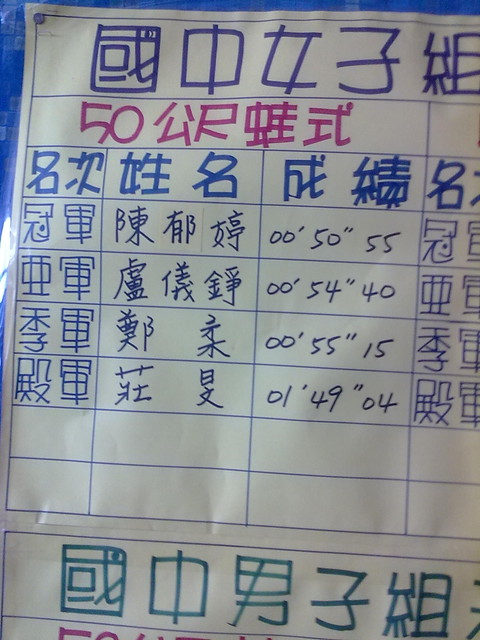 國中女子組
50公尺蛙式
名次 姓名 成績 名
冠軍 陳郁婷 00'50"55 冠
亞軍 盧儀錚 00'54"40 亞
季軍 鄭柔 00'55"15 季
殿軍 莊旻 01'49"04 殿
國中男子組